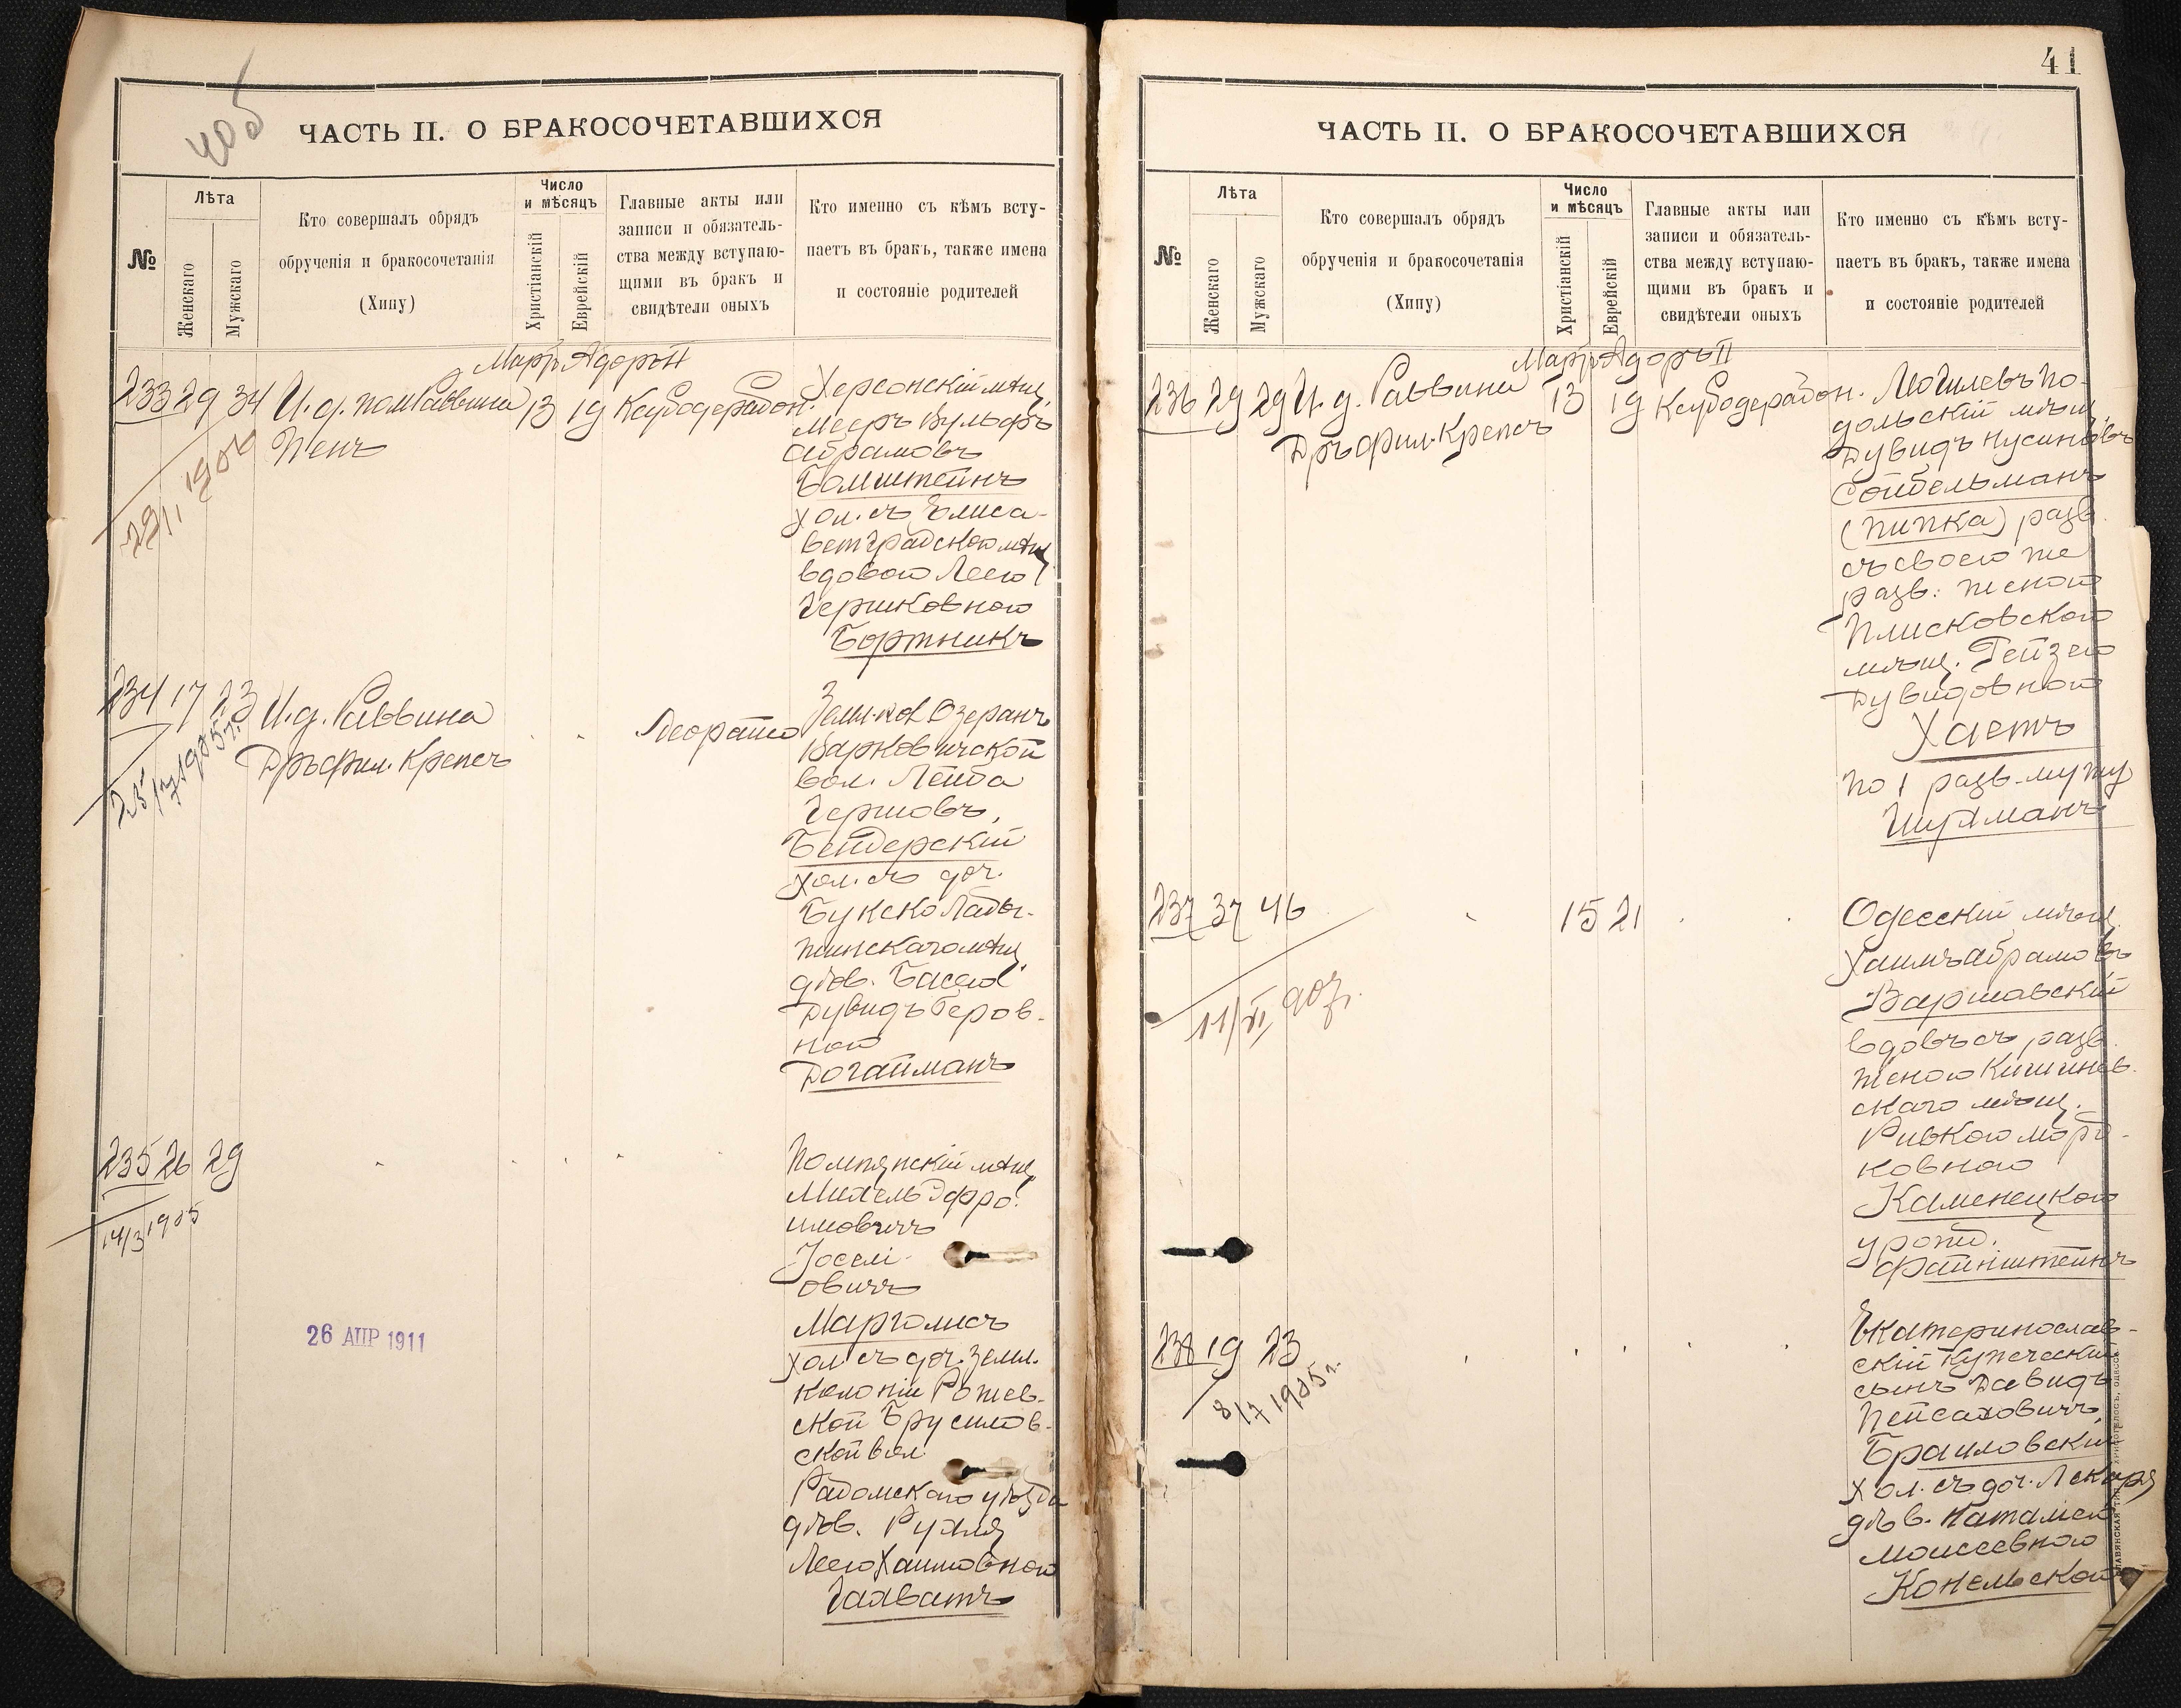 40об
ЧАСТЬ II. О БРАКОСОЧЕТАВШИХСЯ
№
Лѣта
Женскаго
Мужскаго
Кто совершалъ обрядъ
обрученія и бракосочетанія
(Хипу)
Число
и мѣсяцъ
Христіанскій
Еврейскій
Главные акты или
записи и обязатель-
ства между вступаю-
щими въ бракъ и
свидѣтели оныхъ
Кто именно съ кѣмъ всту-
паетъ въ бракъ, также имена
и состояніе родителей
Мартъ Адоръ II
233 29 34 И. д. пом Раввина 13 19 Херсонскій мѣщ.
Пенъ
Мееръ Вульфъ
Абрамовъ
Бомштейнъ
хол. съ Елиса-
ветградскою мѣщ.
вдовою Леею
Гершковною
Бортникъ
234 17 23 И. д. Раввина
Дръ фил. Крепсъ
25/7 1905 г.
Озеранъ
Варковичской
вол. Лейба
Гершовъ
Бендерскій
хол. съ доч.
Букско Лады-
жинскаго мѣщ.
дѣв. Басею
Дувидъ Беров-
ной
Догайманъ
235 26 29
14/3 1905
мѣщ.
Михель Эфро-
имовичъ
Іосели-
овичъ
Марголисъ
хол. съ доч. земл.
колоніи Рожев-
ской Брусилов-
ской вол.
Радомскаго уѣзда
дѣв. Рухля
Леею Хаимовною
26 АПР 1911
41
ЧАСТЬ II. О БРАКОСОЧЕТАВШИХСЯ
№
Лѣта
Женскаго
Мужскаго
Кто совершалъ обрядъ
обрученія и бракосочетанія
(Хипу)
Число
и мѣсяцъ
Христіанскій
Еврейскій
Главные акты или
записи и обязатель-
ства между вступаю-
щими въ бракъ и
свидѣтели оныхъ
Кто именно съ кѣмъ всту-
паетъ въ бракъ, также имена
и состояніе родителей
Мартъ Адоръ II
236 29 29 И. д. Раввина 13 19 Могилевъ По-
Дръ фил. Крепсъ
дольскій мѣщ.
Дувидъ Нусиновъ
Сойбельманъ
(Пипка) разв.
съ своею же
разв. женой
Плисковскою
мѣщ. Гейзею
Дувидовной
Хаетъ
по 1 разв. мужу
Шухманъ
237 37 46 15 21 Одесскій мѣщ.
Хаимъ Абрамовъ
Варшавскій
вдовъ съ разв.
женою Кишинев-
скаго мѣщ.
Ривкою Морд-
ковною
Каменецкою
урожд.
Файнштейнъ
238 19 23
8/7 1905 г.
Екатеринослав-
скій купеческій
сынъ Давидъ
Пейсаховичъ
Браиловскій
хол. съ доч. лекаря
дѣв. Наталіею
Моисеевною
Конельской